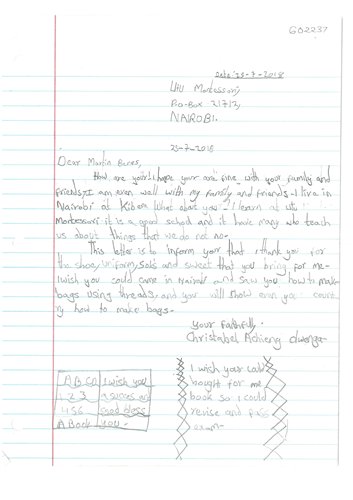 G02237
Date: 25-7-2018
Montessori,
P.o-Box 21712,
NAIROBI.
25-7-2018
Dear Martin Benes,
How are you? I hope your are fine with your family and
friends, I am even well with my family and friends. I live in
Nairobi at Kibera What about you? I learn at
Montessori it is a good school and it have many who teach
us about things that we do not no.
This letter is to inform your that I thank you for
the shoe, uniform, soks and sweet that you bring for me.
I wish you could came in Nairobi and saw you how to make
bags using threads, and you will show even your count
ry how to make bags.
Your Faithfully,
Christabel Achieng
A B C D I wish you
1 2 3 a success and
4 5 6 good bless
A Book you.
I wish you could
bought for me
book so I could
revise and pass
exam.